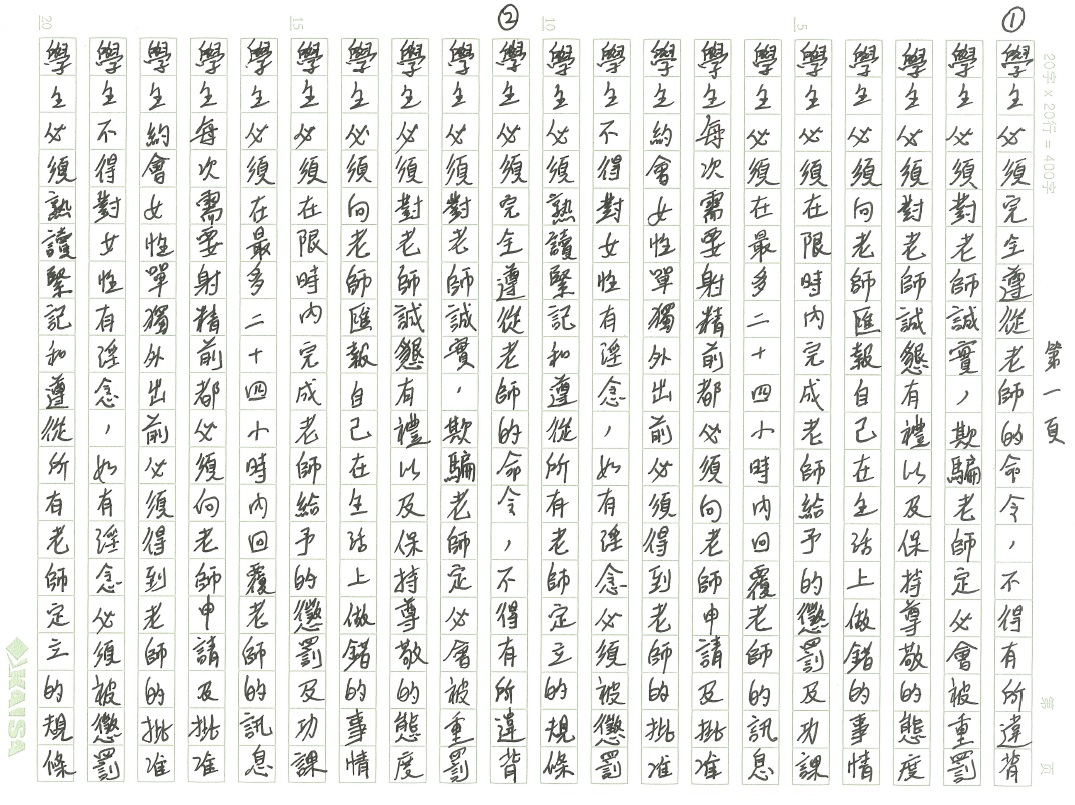 第一頁
20字 x 20行 = 400字
第 页
①
學生必須完全遵從老師的命令，不得有所違背
學生必須對老師誠實，欺騙老師定必會被重罰
學生必須對老師誠懇有禮以及保持尊敬的態度
學生必須向老師匯報自己在生活上做錯的事情
5
學生必須在限時內完成老師給予的懲罰及功課
學生必須在最多二十四小時內回覆老師的訊息
學生每次需要射精前都必須向老師申請及批准
學生約會女性單獨外出前必須得到老師的批准
學生不得對女性有淫念，如有淫念必須被懲罰
10
學生必須熟讀緊記和遵從所有老師定立的規條
②
學生必須完全遵從老師的命令，不得有所違背
學生必須對老師誠實，欺騙老師定必會被重罰
學生必須對老師誠懇有禮以及保持尊敬的態度
學生必須向老師匯報自己在生活上做錯的事情
15
學生必須在限時內完成老師給予的懲罰及功課
學生必須在最多二十四小時內回覆老師的訊息
學生每次需要射精前都必須向老師申請及批准
學生約會女性單獨外出前必須得到老師的批准
學生不得對女性有淫念，如有淫念必須被懲罰
20
學生必須熟讀緊記和遵從所有老師定立的規條
KAISA